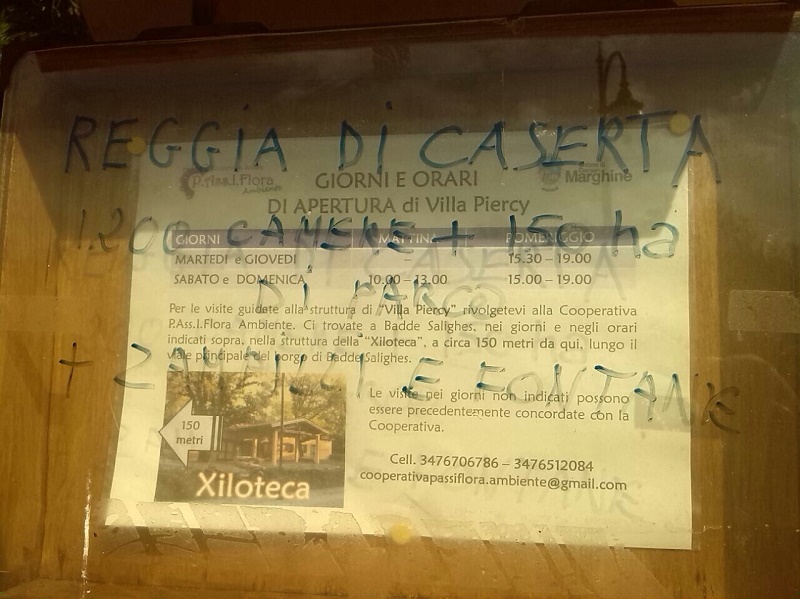 REGGIA DI CASERTA
P.Ass.I.Flora
Ambiente
Marghine
GIORNI E ORARI
DI APERTURA di Villa Piercy
1200 CAMERE + 150 ha
GIORNI MATTINA POMERIGGIO
MARTEDI e GIOVEDI - 15.30 – 19.00
SABATO e DOMENICA 10.00 – 13.00 15.00 – 19.00
DI PARCO
Per le visite guidate alla struttura di "Villa Piercy" rivolgetevi alla Cooperativa
P.Ass.I.Flora Ambiente. Ci trovate a Badde Salighes, nei giorni e negli orari
indicati sopra, nella struttura della "Xiloteca", a circa 150 metri da qui, lungo il
viale principale del borgo di Badde Salighes.
+ ZAMPILLI E FONTANE
Le visite nei giorni non indicati possono
essere precedentemente concordate con la
Cooperativa.
150
metri
Xiloteca
Cell. 3476706786 – 3476512084
cooperativapassiflora.ambiente@gmail.com